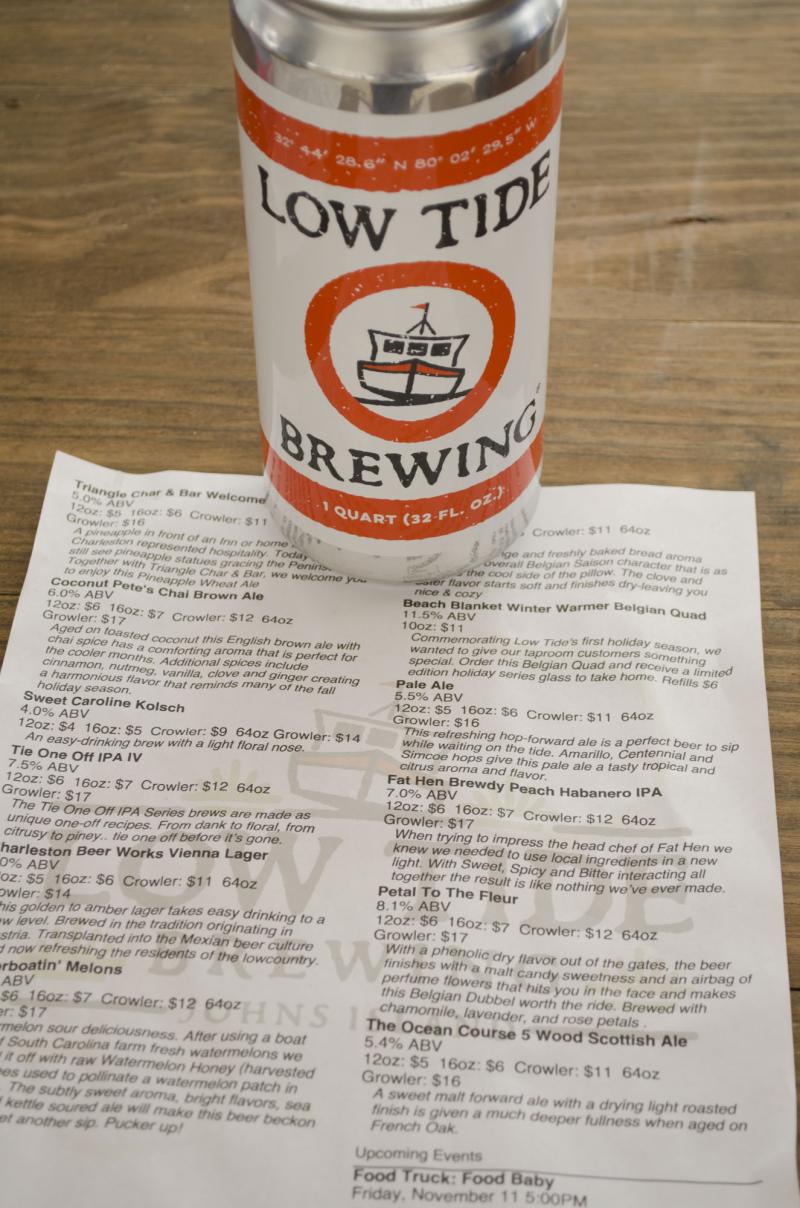 32° 44' 28.6" N 80° 02' 29.5" W
LOW TIDE
BREWING
1 QUART (32 FL. OZ.)
Triangle Char & Bar Welcome
5.0% ABV
12oz: $5 16oz: $6 Crowler: $11
Growler: $16
A pineapple in front of an Inn or home
Charleston represented hospitality. Today
still see pineapple statues gracing the
Together with Triangle Char & Bar, we welcome you
to enjoy this Pineapple Wheat Ale
Coconut Pete's Chai Brown Ale
6.0% ABV
12oz: $6 16oz: $7 Crowler: $12 64oz
Growler: $17
Aged on toasted coconut this English brown ale with
chai spice has a comforting aroma that is perfect for
the cooler months. Additional spices include
cinnamon, nutmeg, vanilla, clove and ginger creating
a harmonious flavor that reminds many of the fall
holiday season.
Sweet Caroline Kolsch
4.0% ABV
12oz: $4 16oz: $5 Crowler: $9 64oz Growler: $14
An easy-drinking brew with a light floral nose.
Tie One Off IPA IV
7.5% ABV
12oz: $6 16oz: $7 Crowler: $12 64oz
Growler: $17
The Tie One Off IPA Series brews are made as
unique one-off recipes. From dank to floral, from
citrusy to piney.. tie one off before it's gone.
harleston Beer Works Vienna Lager
0% ABV
oz: $5 16oz: $6 Crowler: $11 64oz
owler: $14
his golden to amber lager takes easy drinking to a
w level. Brewed in the tradition originating in
stria. Transplanted into the Mexian beer culture
d now refreshing the residents of the lowcountry.
rboatin' Melons
ABV
$6 16oz: $7 Crowler: $12 64oz
er: $17
rmelon sour deliciousness. After using a boat
f South Carolina farm fresh watermelons we
it off with raw Watermelon Honey (harvested
es used to pollinate a watermelon patch in
. The subtly sweet aroma, bright flavors, sea
kettle soured ale will make this beer beckon
et another sip. Pucker up!
Crowler: $11 64oz
nge and freshly baked bread aroma
overall Belgian Saison character that is as
the cool side of the pillow. The clove and
flavor starts soft and finishes dry-leaving you
nice & cozy
Beach Blanket Winter Warmer Belgian Quad
11.5% ABV
10oz: $11
Commemorating Low Tide's first holiday season, we
wanted to give our taproom customers something
special. Order this Belgian Quad and receive a limited
edition holiday series glass to take home. Refills $6
Pale Ale
5.5% ABV
12oz: $5 16oz: $6 Crowler: $11 64oz
Growler: $16
This refreshing hop-forward ale is a perfect beer to sip
while waiting on the tide. Amarillo, Centennial and
Simcoe hops give this pale ale a tasty tropical and
citrus aroma and flavor.
Fat Hen Brewdy Peach Habanero IPA
7.0% ABV
12oz: $6 16oz: $7 Crowler: $12 64oz
Growler: $17
When trying to impress the head chef of Fat Hen we
knew we needed to use local ingredients in a new
light. With Sweet, Spicy and Bitter interacting all
together the result is like nothing we've ever made.
Petal To The Fleur
8.1% ABV
12oz: $6 16oz: $7 Crowler: $12 64oz
Growler: $17
With a phenolic dry flavor out of the gates, the beer
finishes with a malt candy sweetness and an airbag of
perfume flowers that hits you in the face and makes
this Belgian Dubbel worth the ride. Brewed with
chamomile, lavender, and rose petals .
The Ocean Course 5 Wood Scottish Ale
5.4% ABV
12oz: $5 16oz: $6 Crowler: $11 64oz
Growler: $16
A sweet malt forward ale with a drying light roasted
finish is given a much deeper fullness when aged on
French Oak.
Upcoming Events
Food Truck: Food Baby
Friday, November 11 5:00PM